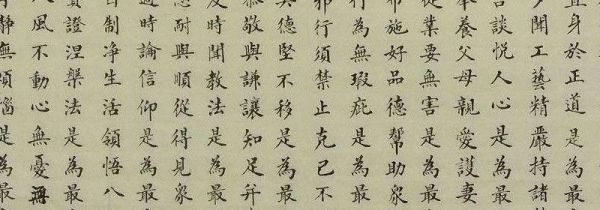 置身於正道是為最
多聞工藝精嚴持諸
言談悅人心是為最
奉養父母親愛護妻
從業要無害是為最
布施好品德幫助眾
行為無瑕疵是為最
邪行須禁止克己不
美德堅不移是為最
恭敬與謙讓知足并
及時聞教法是為最
忍耐與順從得見眾
適時論信仰是為最
自制淨生活領悟八
實證涅槃法是為最
八風不動心無憂無
靜無煩惱是為最